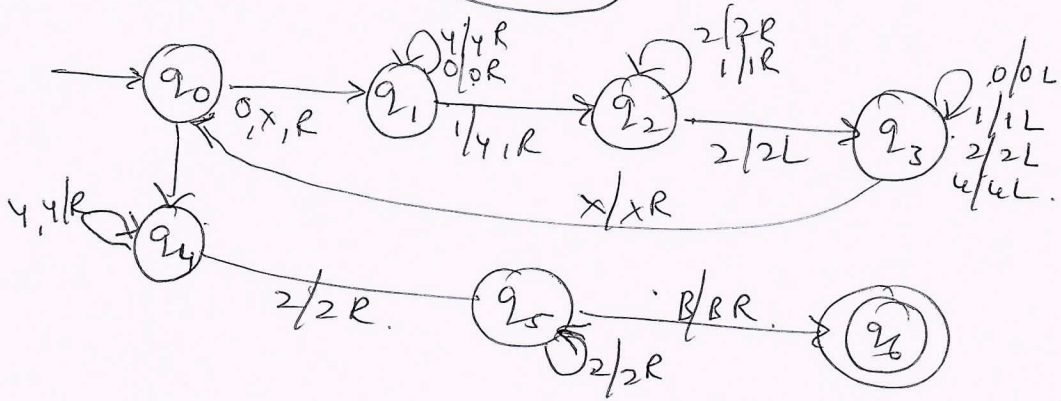 q0
0,x,R
q1
y/yR
0/0R
1/y,R
q2
2/2R
1/1R
2/2L
q3
0/0L
1/1L
2/2L
4/4L.
x/xR
y,y/R
q4
2/2R.
q5
2/2R
B/BR.
q6